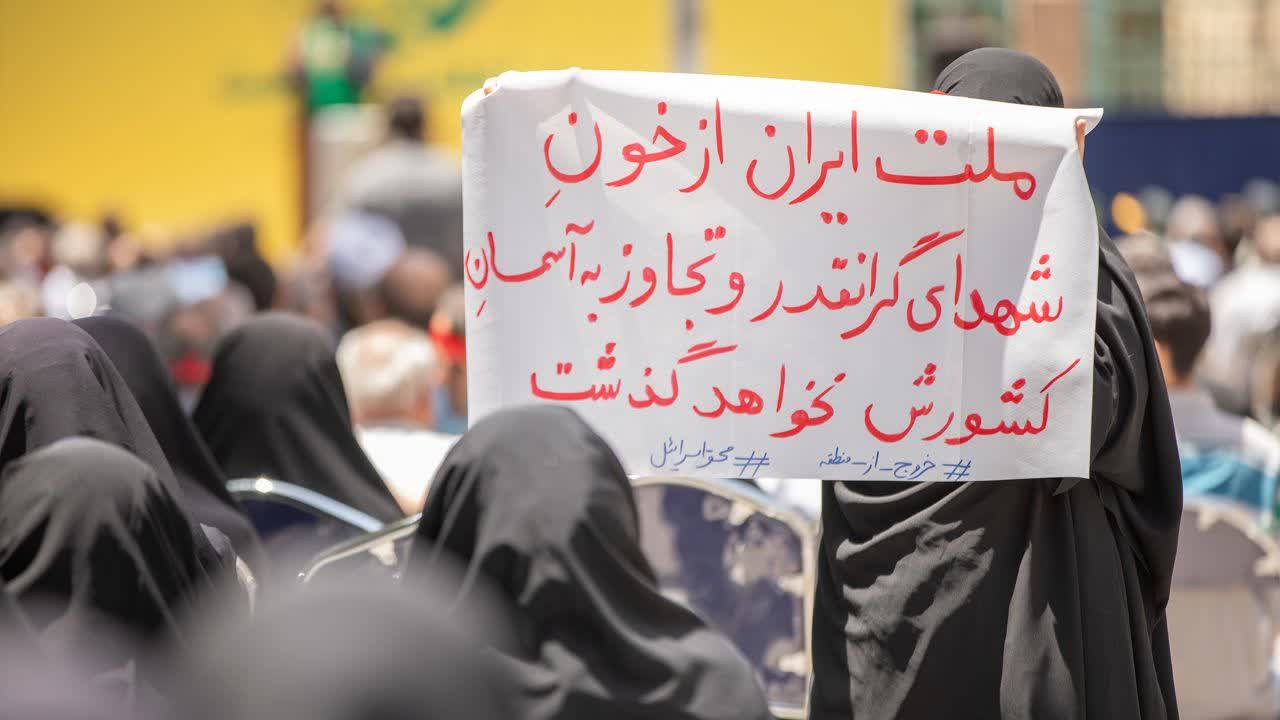 ملت ایران از خونِ
شهدای گرانقدر و تجاوز به آسمانِ
کشورش نخواهد گذشت
#خروج_از_منطقه #محو_اسرائیل